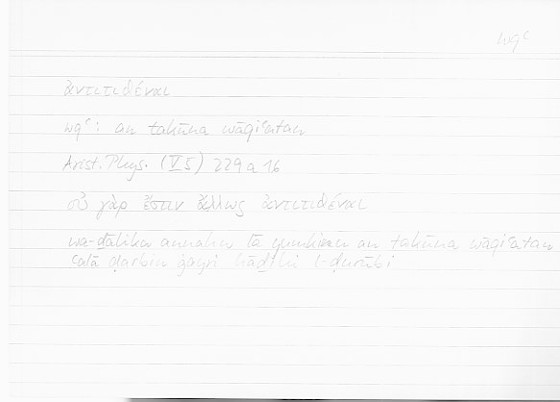 wqʿ
ἀντιτιθέναι
wqʿ: an takūna wāqiʿatan
Arist. Phys. (V 5) 229 a 16
οὐ γὰρ ἔστιν ἄλλως ἀντιτιθέναι
wa-ḏālika annahu lā yumkinu an takūna wāqiʿatan
ʿalā ḍarbin ġayri hāḏihi l-ḍurūbi